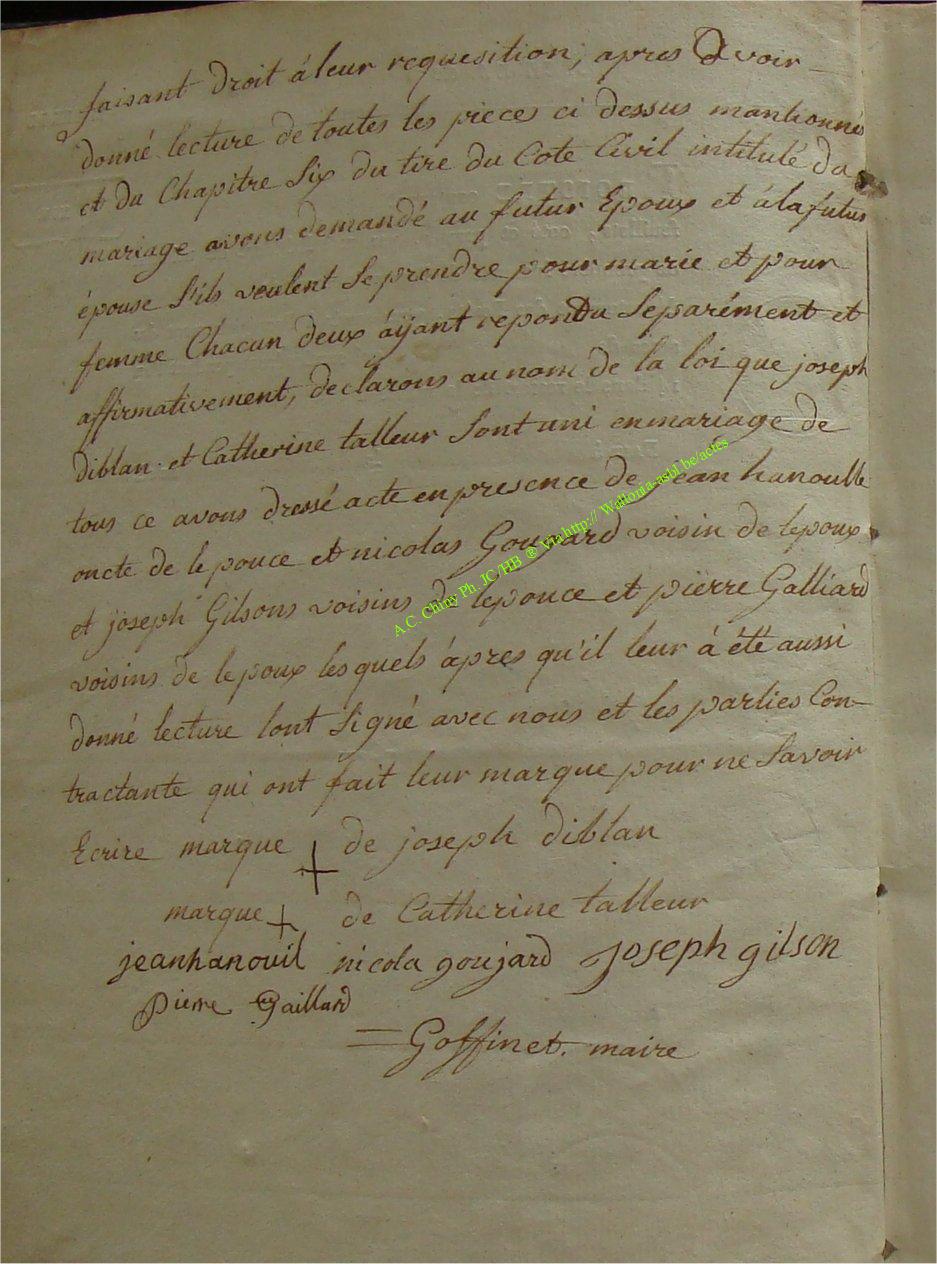 faisant droit à leur requesition, apres Avoir
donné lecture de toutes les pieces ci dessus mantionnés
et du Chapitre Six du tire du Cote Civil intitulé du
mariage avons demandé au futur Epoux et à la futur
épouse S'ils veulent Se prendre pour marie et pour
femme Chacun deux äÿant repondu Separément et
affirmativement, declarons au nom de la loi que joseph
diblan et Catherine talleur Sont uni en mariage de
tous ce avons dressé acte en presence de jean hanoulle
oncte de le pouce et nicolas Goujard voisin de lepoux
et joseph Gilsons voisins d leponce et pïerre Galliard
voisins de le poux lesquels àpres qu'il leur à été aussi
donné lecture lont Signé avec nous et les parties Con-
tractante qui ont fait leur marque pour ne Savoir
Ecrire marque + de joseph diblan
marque + de Catherine talleur
jeanhanouil nicola goujard joseph gilson
pierre Gaillard
= Goffinet. maire
A.C. Chiny Ph. JC/HB ® Via http:// Wallonia-asbl.be/actes